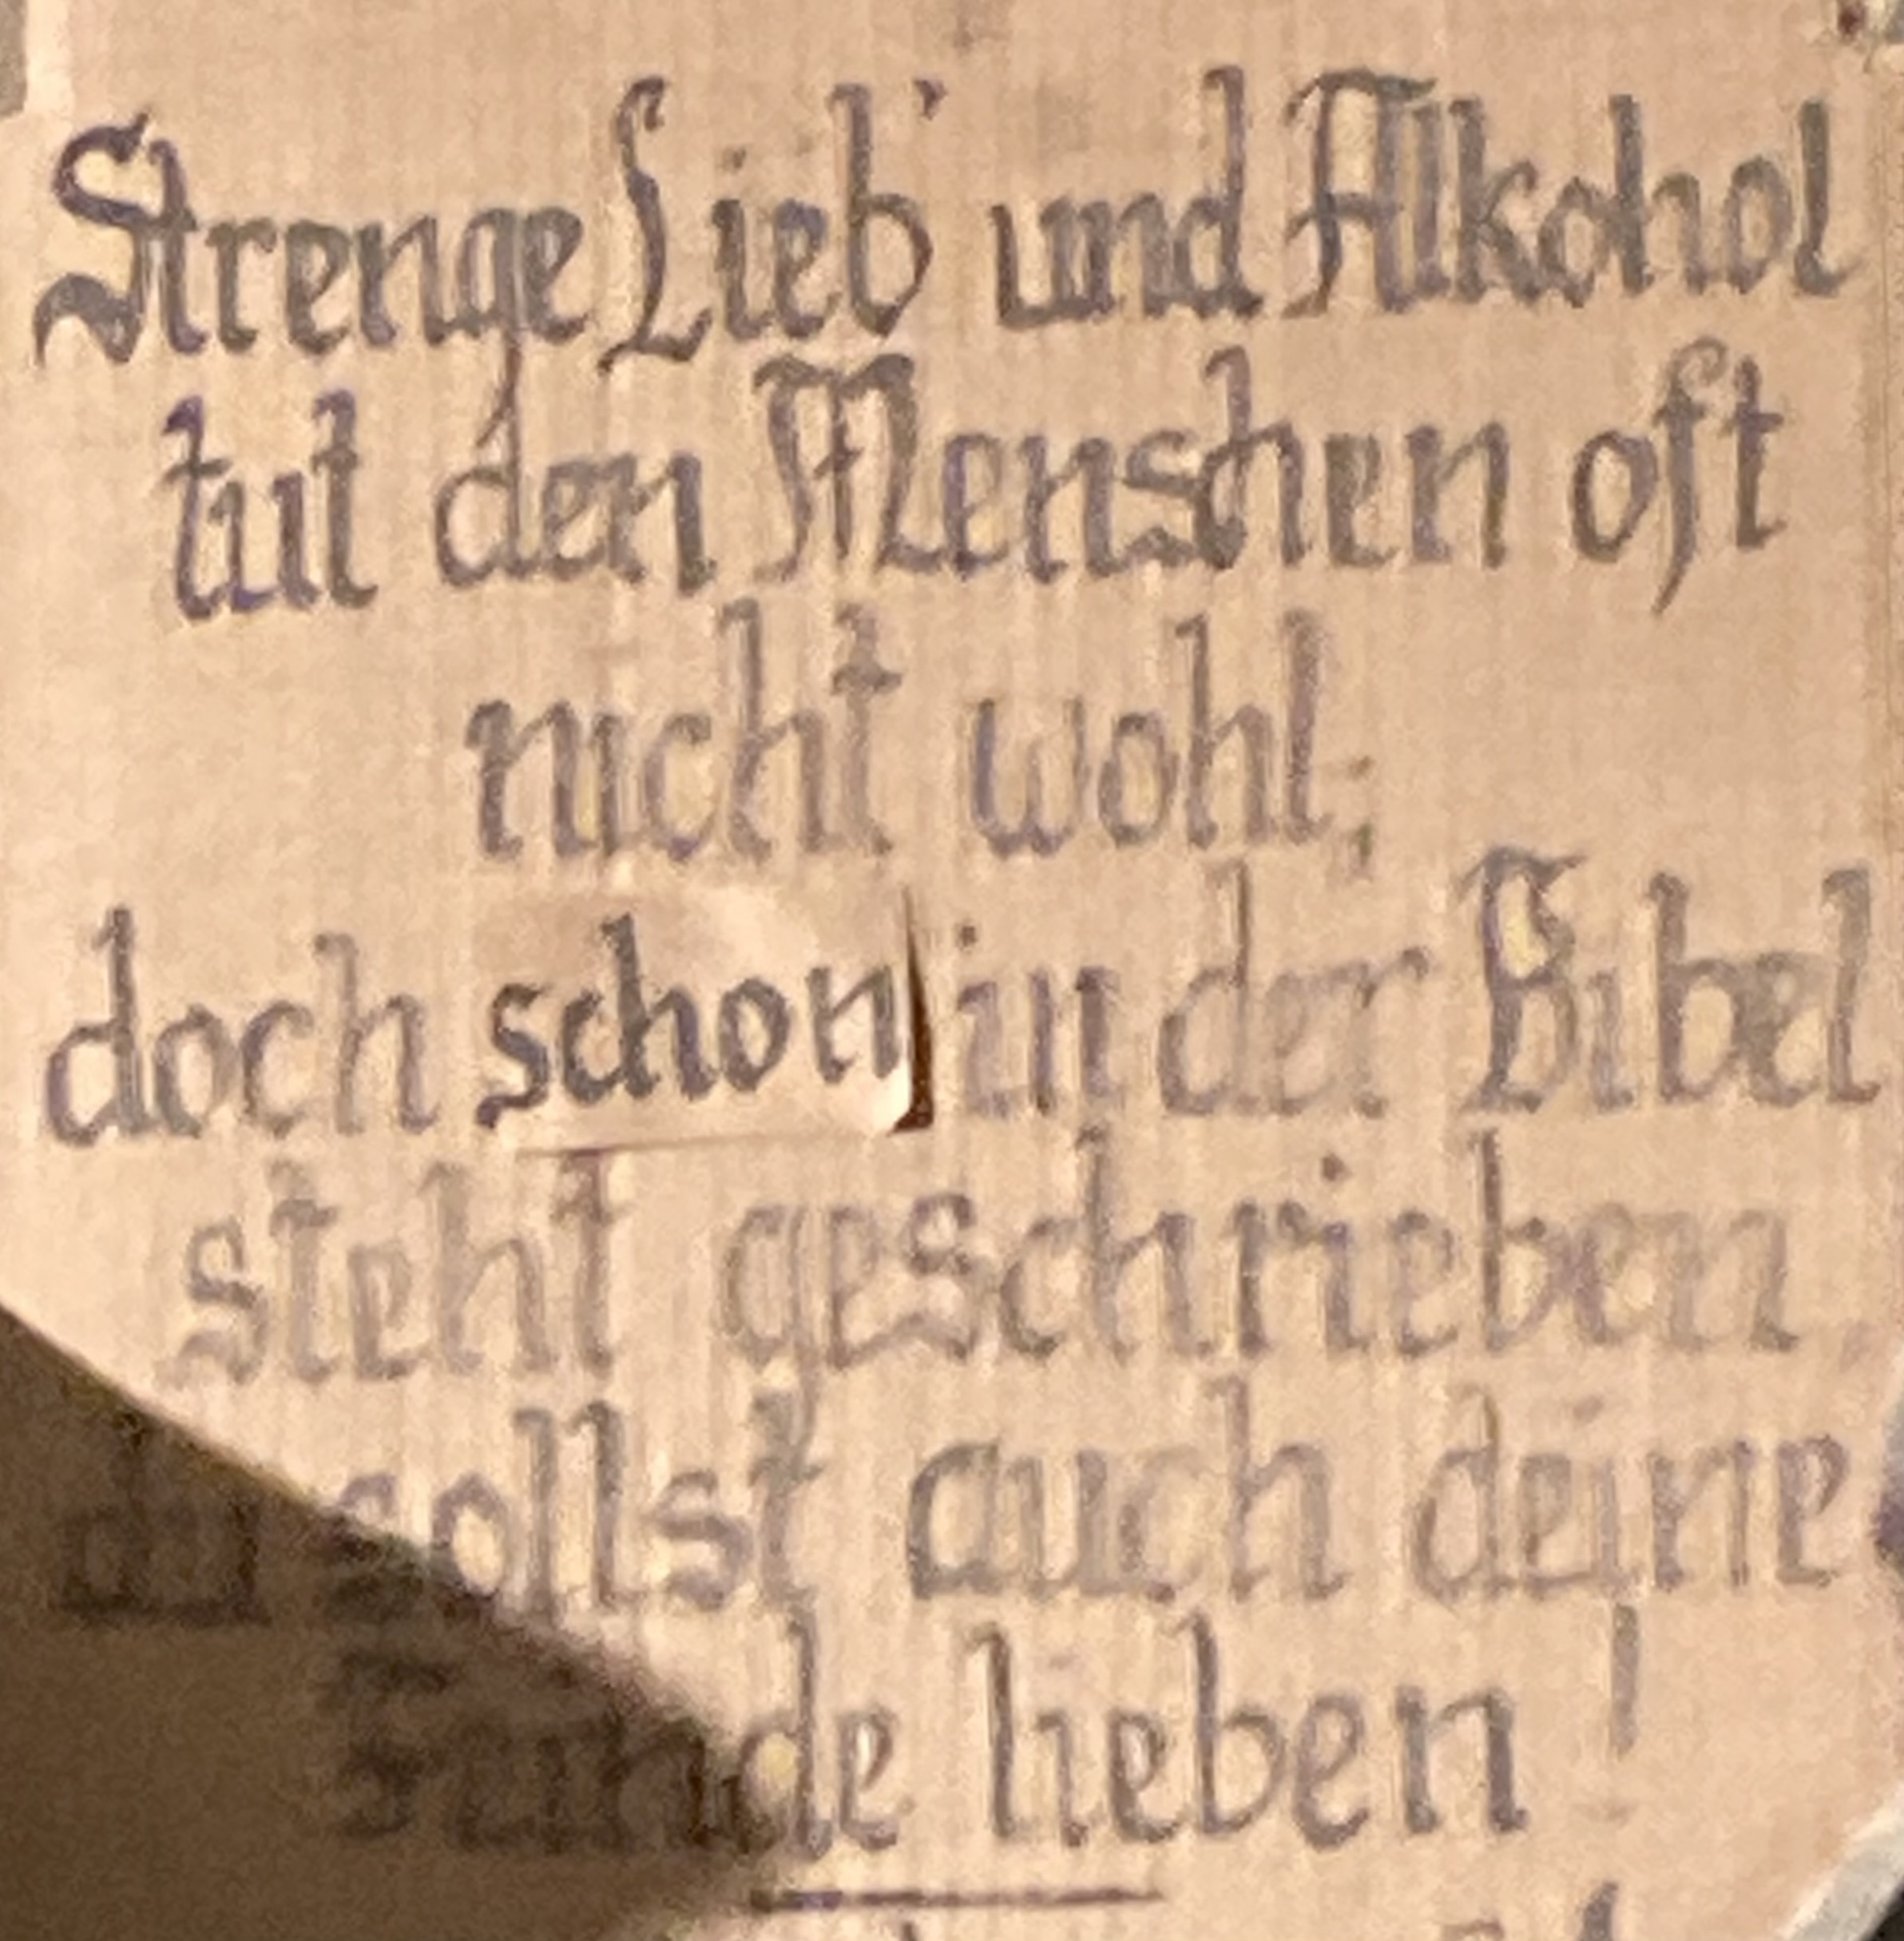 Strenge Lieb' und Alkohol
tut den Menschen oft
nicht wohl;
doch schon in der Bibel
steht geschrieben,
du sollst auch deine
Feinde lieben!